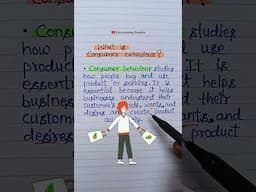 Accounting Seekho
What is
Consumer behaviour?
• Consumer behaviour studies
how people buy and use
product or services. It is
essential because it helps
businesses understand their
customer's needs, wants, and
desires and create product